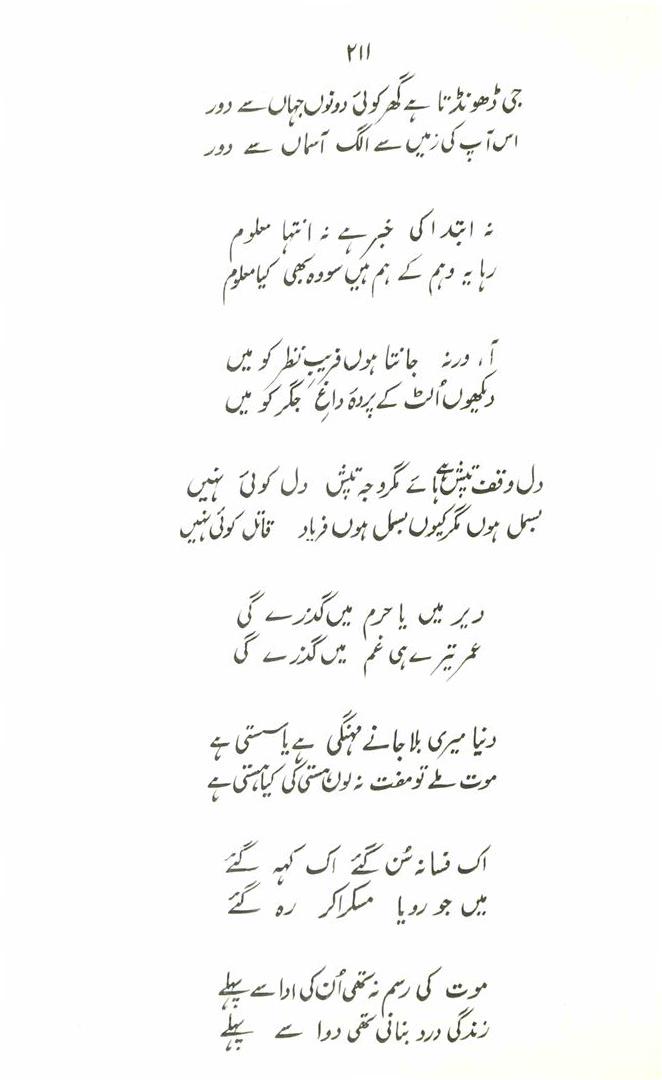 ۲۱۱
جی ڈھونڈتا ہے گھر کوئی دونوں جہاں سے دور
اس آپ کی زمیں سے الگ آسماں سے دور
نہ ابتدا کی خبر ہے نہ انتہا معلوم
رہا یہ وہم کے ہم ہیں سو وہ بھی کیا معلوم
آ، ورنہ جانتا ہوں فریبِ نظر کو میں
دیکھوں اُلٹ کے پردۂ داغِ جگر کو میں
دل وقف تپش ہے ہائے مگر وجہ تپش دل کوئی نہیں
بسمل ہوں مگر کیوں بسمل ہوں فریاد قاتل کوئی نہیں
دیر میں یا حرم میں گذرے گی
عمر تیرے ہی غم میں گذرے گی
دنیا میری بلا جانے مہنگی ہے یا سستی ہے
موت ملے تو مفت نہ لوں ہستی کی کیا ہستی ہے
اک فسانہ سُن گئے اک کہہ گئے
میں جو رویا مسکرا کر رہ گئے
موت کی رسم نہ تھی اُن کی ادا سے پہلے
زندگی درد بنائی تھی دوا سے پہلے